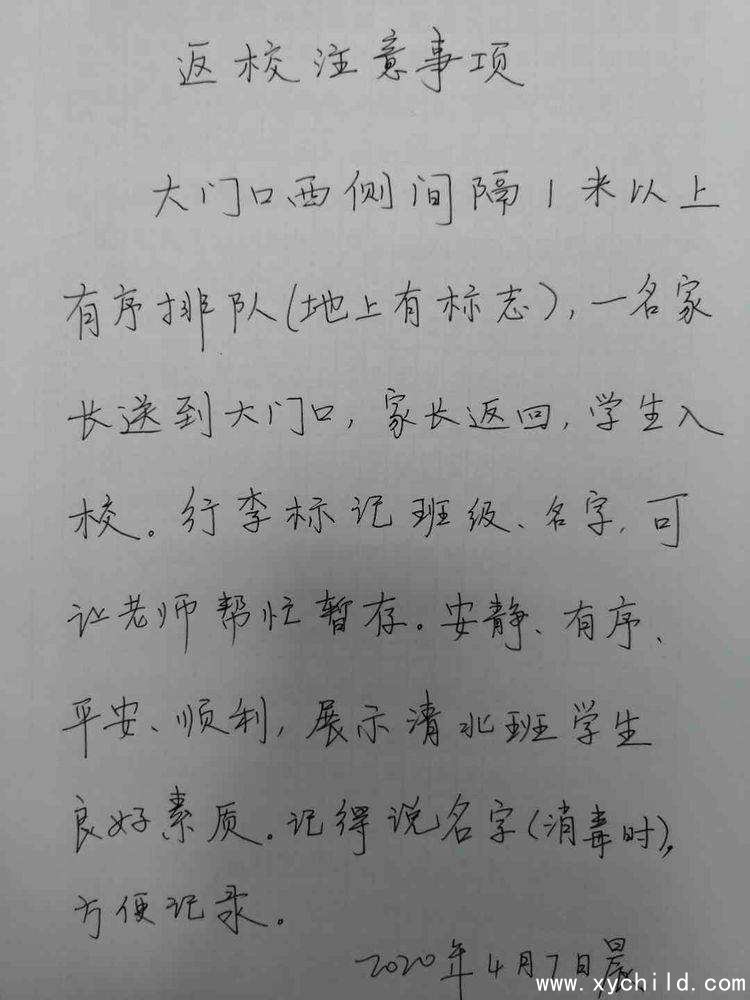 返校注意事项
大门口西侧间隔1米以上
有序排队(地上有标志),一名家
长送到大门口,家长返回,学生入
校。行李标记班级、名字,可
让老师帮忙暂存。安静、有序、
平安、顺利,展示清北班学生
良好素质。记得说名字(消毒时),
方便记录。
2020年4月7日晨
www.xychild.com